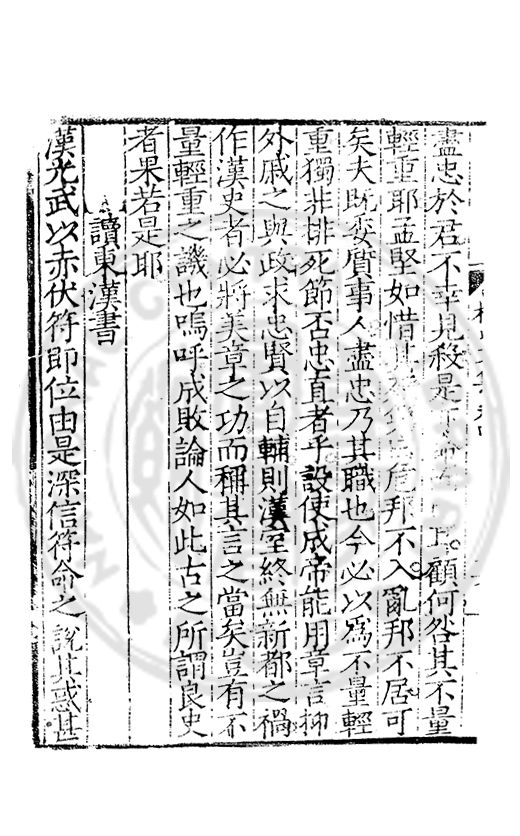 盡忠於君不幸見殺是顧何咎其不量
輕重耶孟堅如惜其危邦不入亂邦不居可
矣夫既委質事人盡忠乃其職也今必以爲不量輕
重獨非排死節否忠直者乎設使成帝能用章言抑
外戚之與政求忠賢以自輔則漢室終無新都之禍
作漢史者必將美章之功而稱其言之當矣豈有不
量輕重之譏也嗚呼成敗論人如此古之所謂良史
者果若是耶
讀東漢書
漢光武以赤伏符即位由是深信符命之說其惑甚